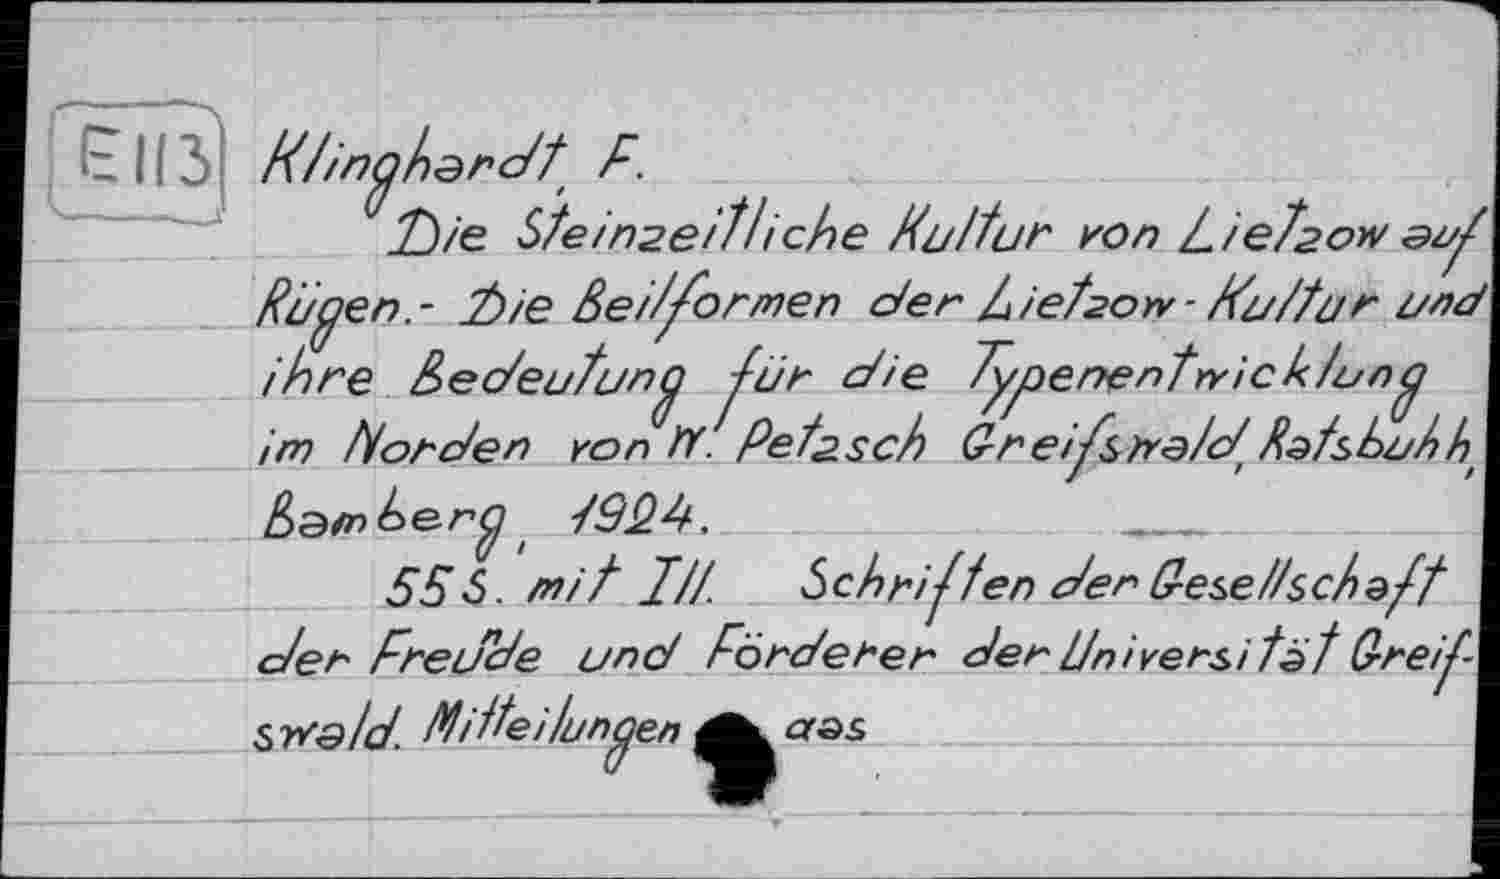 E113 Klinghardt, F.
Die Steinzeitliche Kultur von Lietzow auf
Rügen.- Die Beilformen der Lietzow-Kultur und
ihre Bedeutung für die Typenentwicklung
im Norden von W. Petzsch Greifswald, Ratsbuhh,
Bamberg, 1924.
55 S. mit Ill. Schriften der Gesellschaft
der Freunde und Förderer der Universität Greif-
swald. Mitteilungen aas